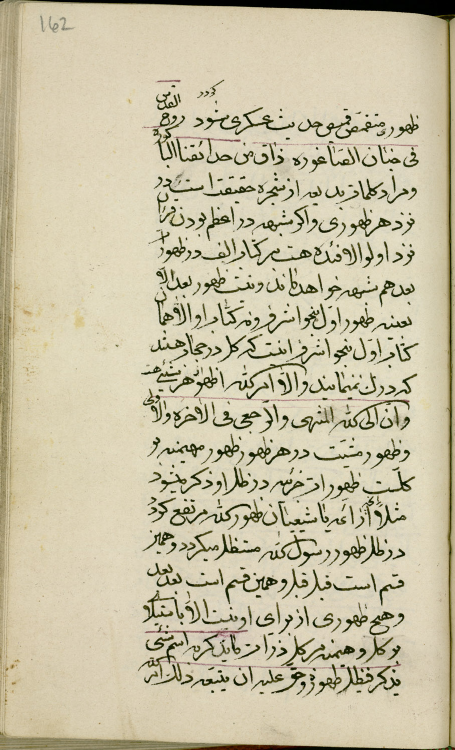 162
گردد
ظهور متقمص قمیص حدیث عسکری میشود روح القدس
فی جنان الصاغوره ذاق من حدائقنا الباکورة
و مراد کلما نزل بعد از شجره حقیقت است در
نزد هر ظهوری و اگر شبهه در اعظم بودن قرآن
نزد اولوالافئده هست در کتاب الف در ظهور
بعد هم شبهه خواهد ماند و نیست ظهور بعد الا
بعینه ظهور اول بنحو اشرف و نه کتاب او الا همان
کتاب اول بنحو اشرف اینست که کل در حجاب هستند
که درک نمینمایند و الا امر الله اظهر از هر شیئی هست
و ان الی الله المنتهی و الرجعی فی الآخرة و الاولی
و ظهور مشیت در هر ظهور ظهور مهیمنه بر
کلست ظهورات جزئیه در ظل او ذکر میشود
مثلا اگر از ائمه یا شیعیان ظهور الله مرتفع گردد
در ظل ظهور رسول الله مستظل میگردد و همین
قسم است قبل قبل و همین قسم است بعد بعد
و هیچ ظهوری از برای او نیست الا باستیلاء
بر کل و هیمنه بر کل ذرات ما یذکر به اسم شیئ
یذکر فی ظل ظهوره و حق علیه ان یتبعه ذلک امر الله